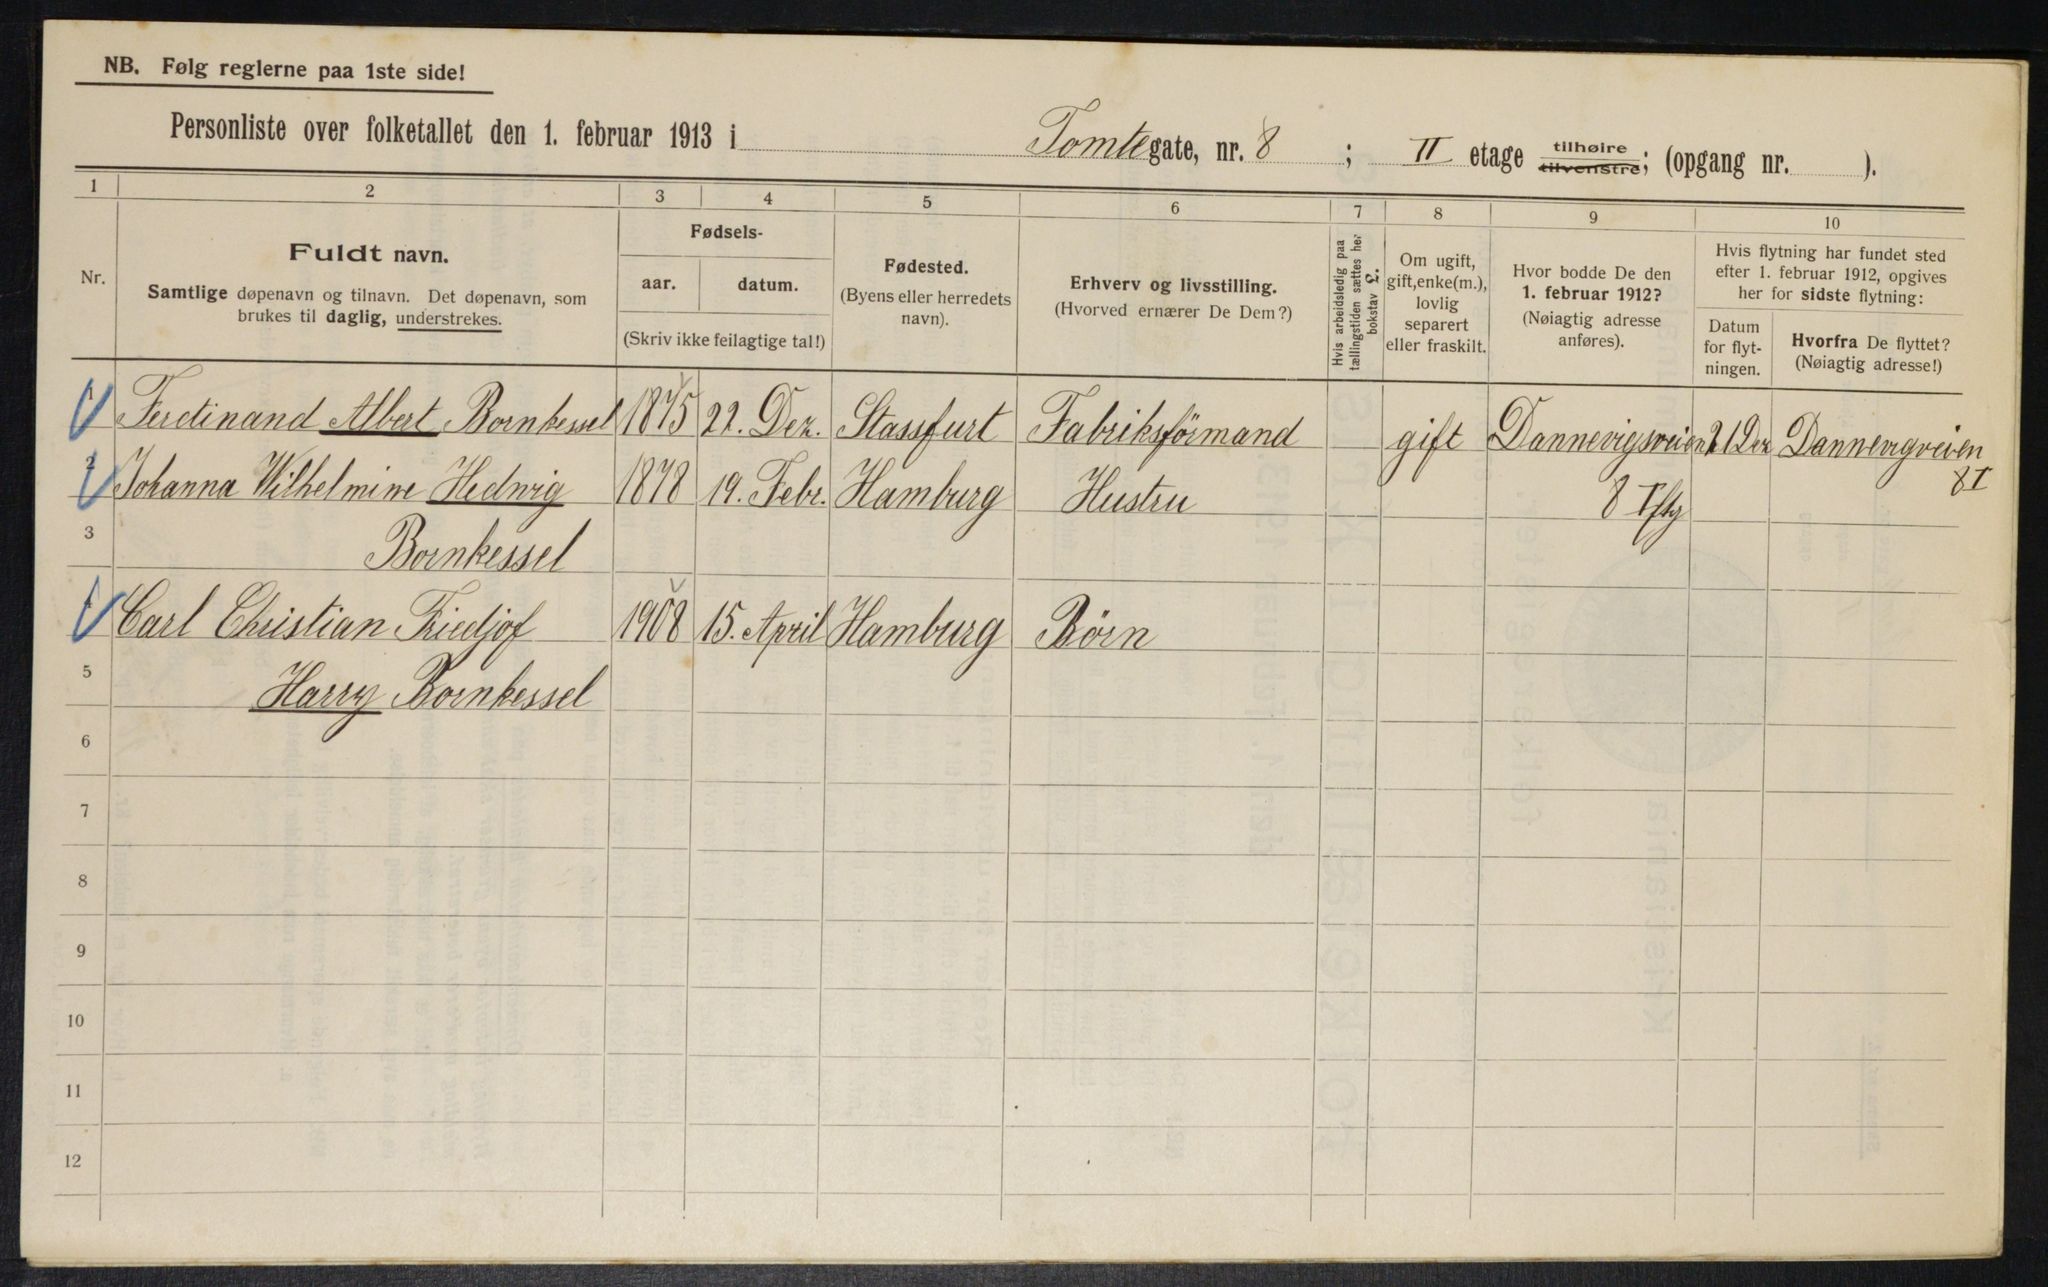 NB. Følg reglerne paa 1ste side!
Personliste over folketallet den 1. februar 1913 i Tomtegate, nr. 8 ; II etage tilhøire tilvenstre; (opgang nr. ).
1 2 3 4 5 6 7 8 9 10
Nr.
Fuldt navn.
Samtlige døpenavn og tilnavn. Det døpenavn, som
brukes til daglig, understrekes.
Fødsels-
aar. datum.
(Skriv ikke feilagtige tal!)
Fødested.
(Byens eller herredets
navn).
Erhverv og livsstilling.
(Hvorved ernærer De Dem?)
Hvis arbeidsledig paa
tællingstiden sættes her
bokstav L.
Om ugift,
gift, enke(m.),
lovlig
separert
eller fraskilt.
Hvor bodde De den
1. februar 1912?
(Nøiagtig adresse
anføres).
Hvis flytning har fundet sted
efter 1. februar 1912, opgives
her for sidste flytning:
Datum
for flyt-
ningen.
Hvorfra De flyttet?
(Nøiagtig adresse!)
1 Ferdinand Albert Bornkessel 1875 22. Dez. Stassfurt Fabriksførmand gift Dannevigsveien 21 Dez Dannevigveien
8 I
2 Johanna Wilhelmine Hedwig 1878 19. Febr. Hamburg Hustru 8 I
3 Bornkessel
4 Carl Christian Friedjof 1908 15. April Hamburg Børn
5 Harry Bornkessel
6
7
8
9
10
11
12